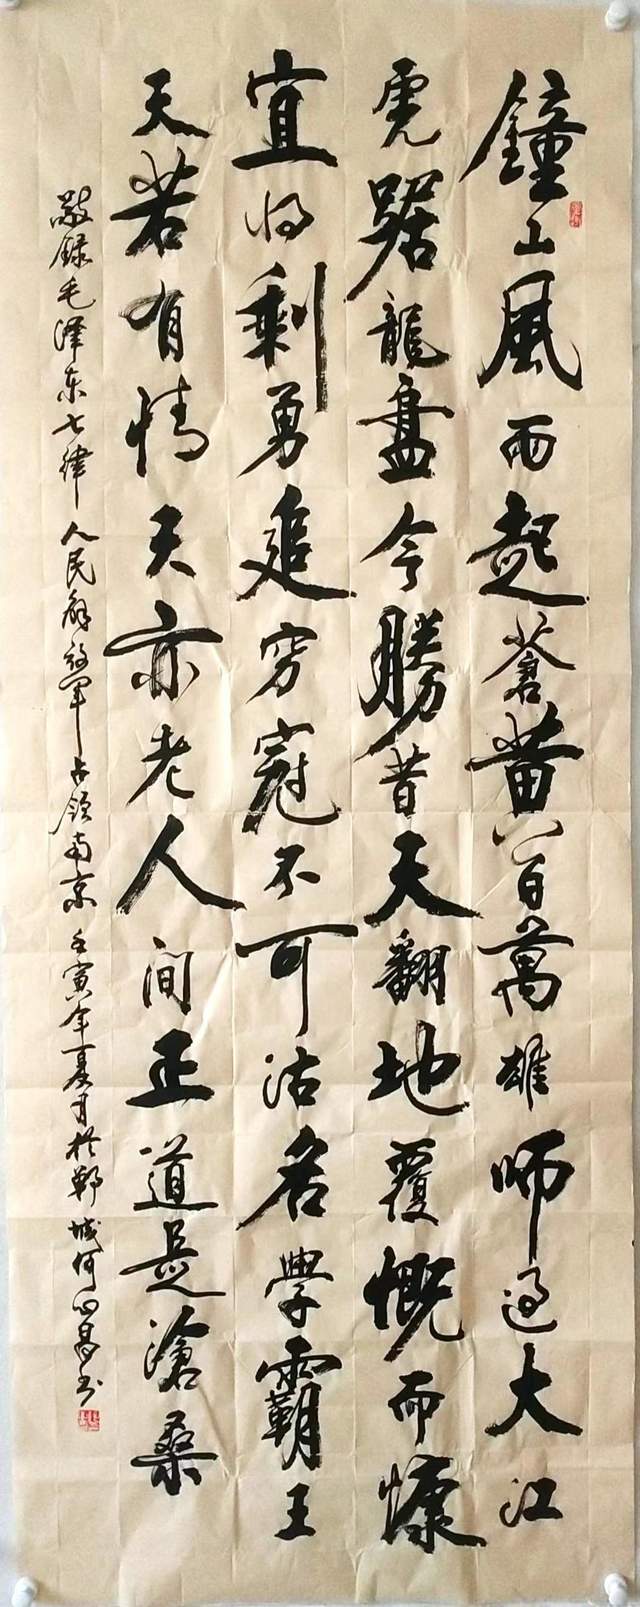 鐘山風雨起蒼黃百萬雄師過大江
虎踞龍盤今勝昔天翻地覆慨而慷
宜将剩勇追穷寇不可沽名學霸王
天若有情天亦老人间正道是滄桑
敬錄毛泽东七律人民解放军占领南京壬寅年夏月於鄲城何